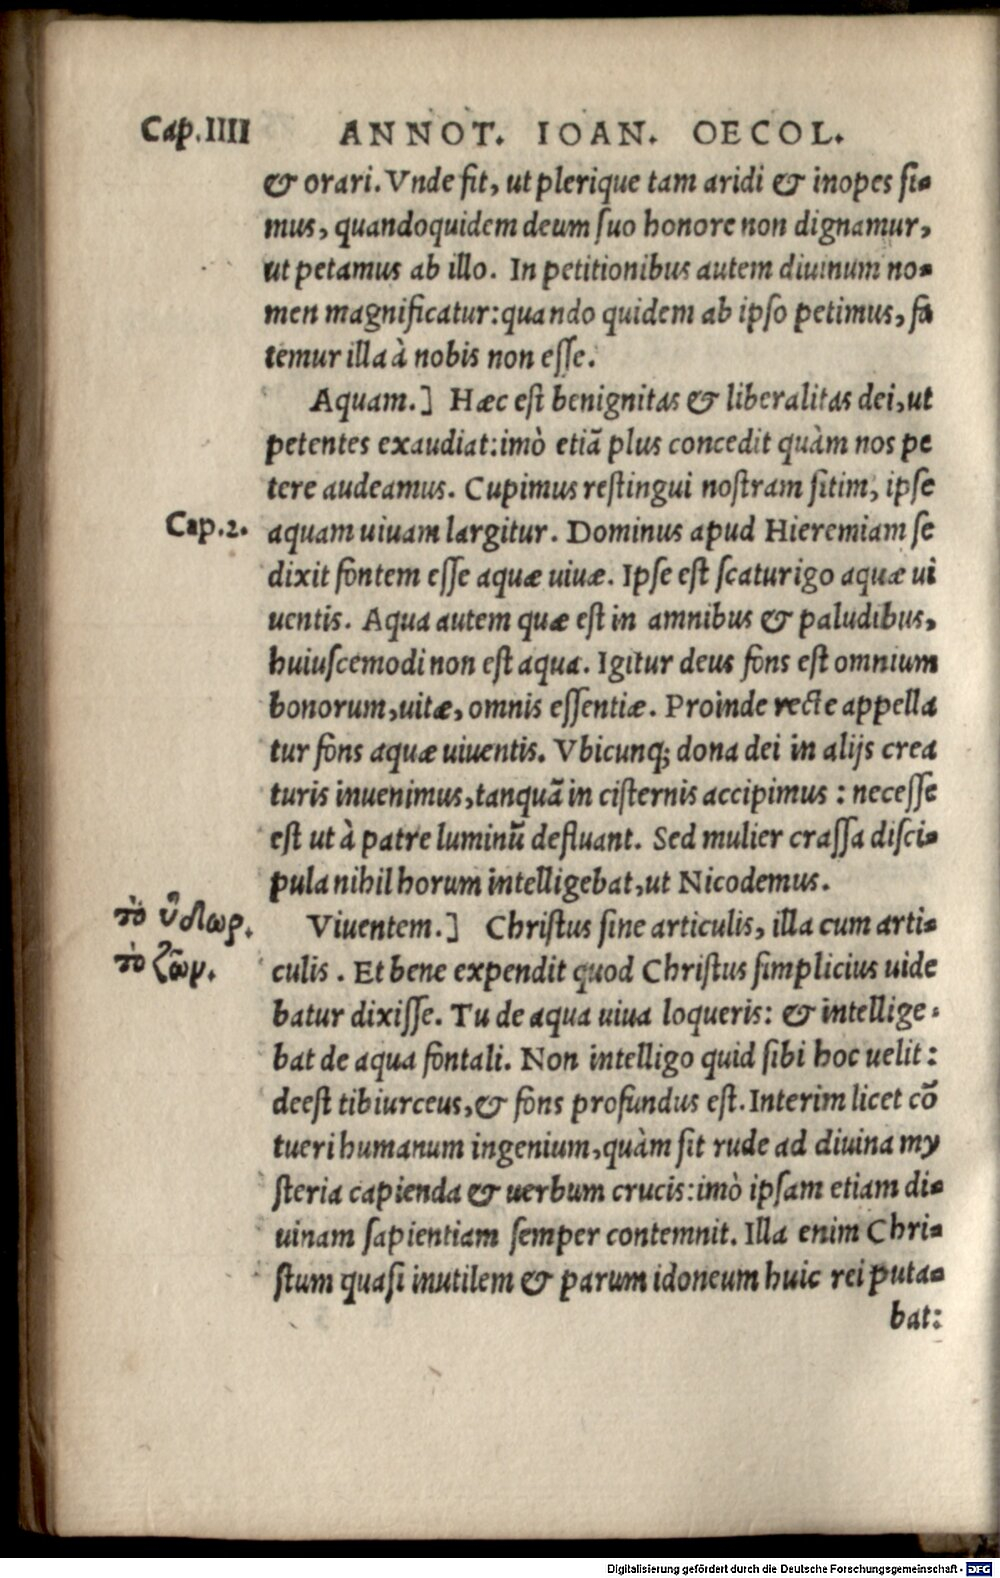 Cap.IIII ANNOT. IOAN. OECOL.
& orari. Vnde fit, ut plerique tam aridi & inopes si-
mus, quandoquidem deum suo honore non dignamur,
ut petamus ab illo. In petitionibus autem diuinum no-
men magnificatur: quando quidem ab ipso petimus, fa
temur illa à nobis non esse.
Aquam.] Hæc est benignitas & liberalitas dei, ut
petentes exaudiat: imò etiã plus concedit quàm nos pe
tere audeamus. Cupimus restingui nostram sitim, ipse
Cap.2. aquam uiuam largitur. Dominus apud Hieremiam se
dixit fontem esse aquæ uiuæ. Ipse est scaturigo aquæ ui
uentis. Aqua autem quæ est in amnibus & paludibus,
huiuscemodi non est aqua. Igitur deus fons est omnium
bonorum, uitæ, omnis essentiæ. Proinde recte appella
tur fons aquæ uiuentis. Vbicunq; dona dei in alijs crea
turis inuenimus, tanquã in cisternis accipimus : necesse
est ut à patre luminũ defluant. Sed mulier crassa disci-
pula nihil horum intelligebat, ut Nicodemus.
τὸ ὕδωρ. Viuentem.] Christus sine articulis, illa cum arti-
τὸ ζῶν. culis . Et bene expendit quod Christus simplicius uide
batur dixisse. Tu de aqua uiua loqueris: & intellige-
bat de aqua fontali. Non intelligo quid sibi hoc uelit:
deest tibi urceus, & fons profundus est. Interim licet cõ
tueri humanum ingenium, quàm sit rude ad diuina my
steria capienda & uerbum crucis: imò ipsam etiam di-
uinam sapientiam semper contemnit. Illa enim Chri-
stum quasi inutilem & parum idoneum huic rei puta-
bat:
Digitalisierung gefördert durch die Deutsche Forschungsgemeinschaft - DFG